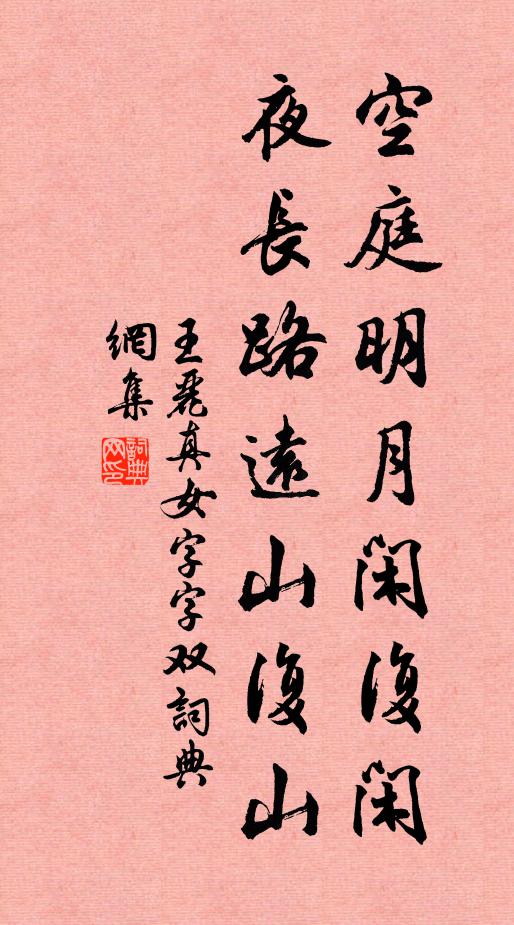 空庭明月閑復閑
夜長路遠山復山
王麗真女字字双詞典
網集
詞典
网印